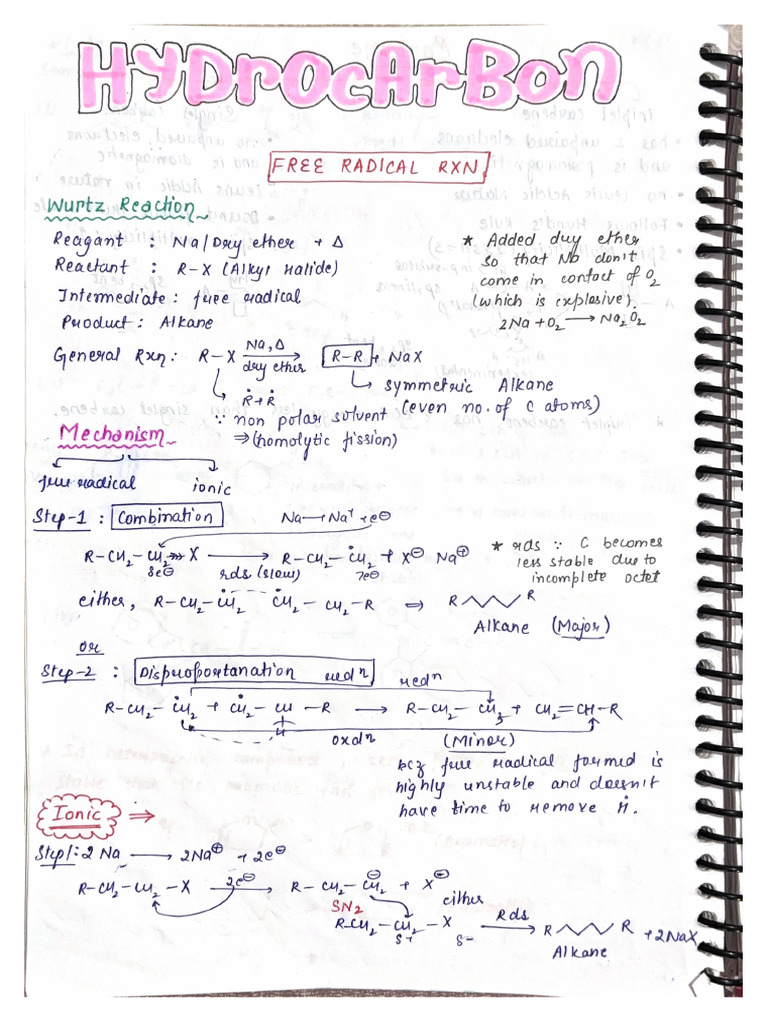 HYDrOCArBon
FREE RADICAL RXN
Wurtz Reaction
Reagant : Na/Dry ether + Δ
Reactant : R-X (Alkyl halide)
Intermediate : free radical
Product : Alkane
* Added dry ether
so that Nb don't
come in contact of O2
(which is explosive).
2Na + O2 → Na2O2
General Rxn: R-X Na, Δ → dry ether R-R + NaX
Ṙ + Ṙ
→ symmetric Alkane
(even no. of C atoms)
∵ non polar solvent
⇒ (homolytic fission)
Mechanism
free radical ionic
Step-1 : Combination Na → Na+ + e⊖
R-CH2-CH2-X → R-CH2-ĊH2 + X⊖ Na⊕
8e⊖ rds (slow) 7e⊖
* rds ∵ C becomes
less stable due to
incomplete octet
either, R-CH2-ĊH2 ĊH2-CH2-R ⇒ R R
Alkane (Major)
or
Step-2 : Disproportanation redn
redn
R-CH2-ĊH2 + ĊH2-CH-R → R-CH2-CH3 + CH2=CH-R
H
oxdn (Minor)
bcz free radical formed is
highly unstable and doesn't
have time to remove Ḣ.
Ionic ⇒
Step1:- 2Na → 2Na⊕ + 2e⊖
R-CH2-CH2-X 2e⊖ → R-CH2-CH2⊖ + X⊖
either
SN2
R-CH2-CH2-X Rds → R R + 2NaX
δ+ δ-
Alkane